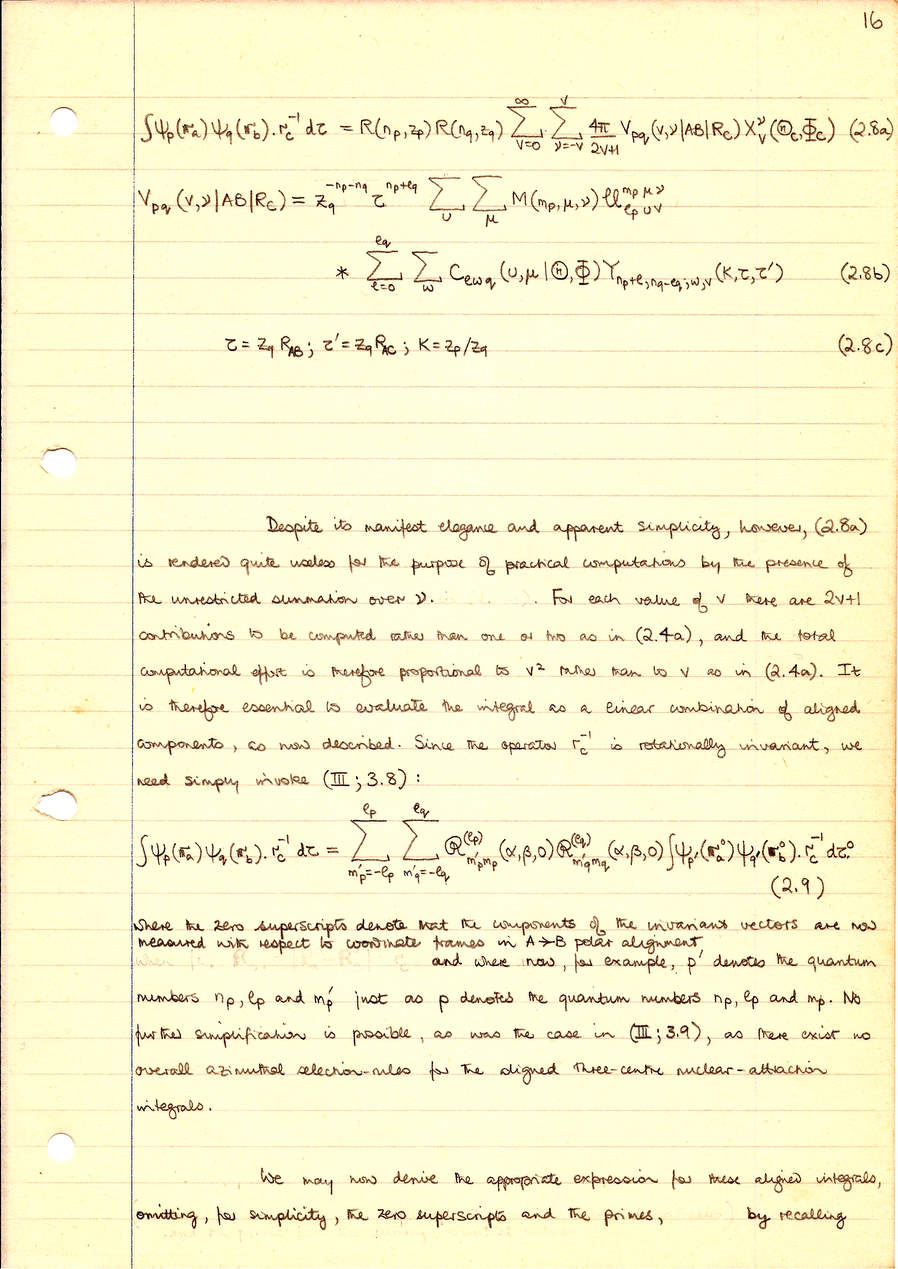 16
∫Ψp(𝐫a)Ψq(𝐫b).rc⁻¹dτ = R(np,zp)R(nq,zq) ∑_{v=0}^{∞} ∑_{ν=-v}^{v} 4π/(2v+1) Vpq(v,ν|AB|RC) X_v^ν(ΘC,ΦC) (2.8a)
Vpq(v,ν|AB|RC) = zq^{-np-nq} τ^{np+ℓq} ∑_U ∑_μ M(mp,μ,ν) 𝒰_{ℓp U v}^{mp μ ν}
* ∑_{ℓ=0}^{ℓq} ∑_w Cℓwq(U,μ|Θ,Φ) Y_{np+ℓ,nq-ℓq;w,v}(K,τ,τ′) (2.8b)
τ = zq RAB; τ′ = zq RAC; K = zp/zq (2.8c)
Despite its manifest elegance and apparent simplicity, however, (2.8a)
is rendered quite useless for the purpose of practical computations by the presence of
the unrestricted summation over ν. . For each value of v there are 2v+1
contributions to be computed rather than one or two as in (2.4a), and the total
computational effort is therefore proportional to v² rather than to v as in (2.4a). It
is therefore essential to evaluate the integral as a linear combination of aligned
components, as now described. Since the operator rc⁻¹ is rotationally invariant, we
need simply invoke (III; 3.8) :
∫Ψp(𝐫a)Ψq(𝐫b).rc⁻¹dτ = ∑_{m′p=-ℓp}^{ℓp} ∑_{m′q=-ℓq}^{ℓq} ℛ_{m′p mp}^{(ℓp)}(α,β,0) ℛ_{m′q mq}^{(ℓq)}(α,β,0) ∫Ψp′(𝐫a⁰)Ψq′(𝐫b⁰).rc⁻¹dτ⁰.
(2.9)
where the zero superscripts denote that the components of the invariant vectors are now
measured with respect to coordinate frames in A→B polar alignment
and where now, for example, p′ denotes the quantum
numbers np, ℓp and m′p just as p denotes the quantum numbers np, ℓp and mp. No
further simplification is possible, as was the case in (III; 3.9), as there exist no
overall azimuthal selection-rules for the aligned three-centre nuclear-attraction
integrals.
We may now derive the appropriate expression for these aligned integrals,
omitting, for simplicity, the zero superscripts and the primes, by recalling